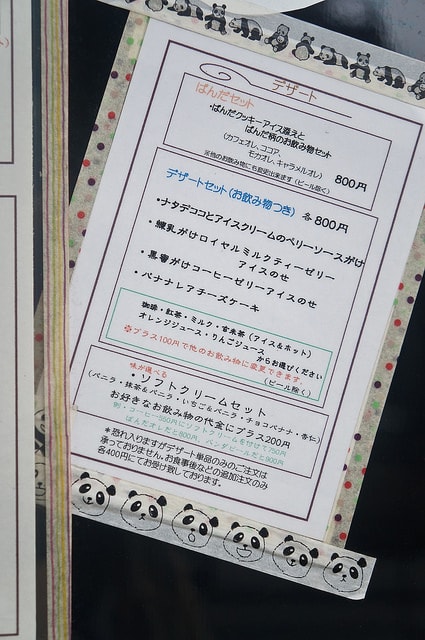 デザート
ぱんだセット
・ぱんだクッキーアイス添えと
ぱんだ柄のお飲み物セット
(カフェオレ、ココア、
モカオレ、キャラメルオレ)
※他のお飲み物にも変更出来ます(ビール除く)
800円
デザートセット(お飲み物つき) 各800円
・ナタデココとアイスクリームのベリーソースがけ
・練乳がけロイヤルミルクティーゼリー
アイスのせ
・黒蜜がけコーヒーゼリーアイスのせ
・バナナレアチーズケーキ
珈琲・紅茶・ミルク・玄米茶(アイス&ホット)
オレンジジュース・りんごジュース
からお選びください
プラス100円で他のお飲み物に変更できます。
(ビール除く)
味が選べる
・ソフトクリームセット
(バニラ・抹茶&バニラ・いちご&バニラ・チョコバナナ・杏仁)
お好きなお飲み物の代金にプラス200円
例・コーヒー550円にソフトクリームを付けて750円
ぱんだオレだと800円、パンダビールだと900円
*恐れ入りますがデザート単品のみのご注文は
承っておりません。お食事後などの追加注文のみ
各400円にてお受け致しております。